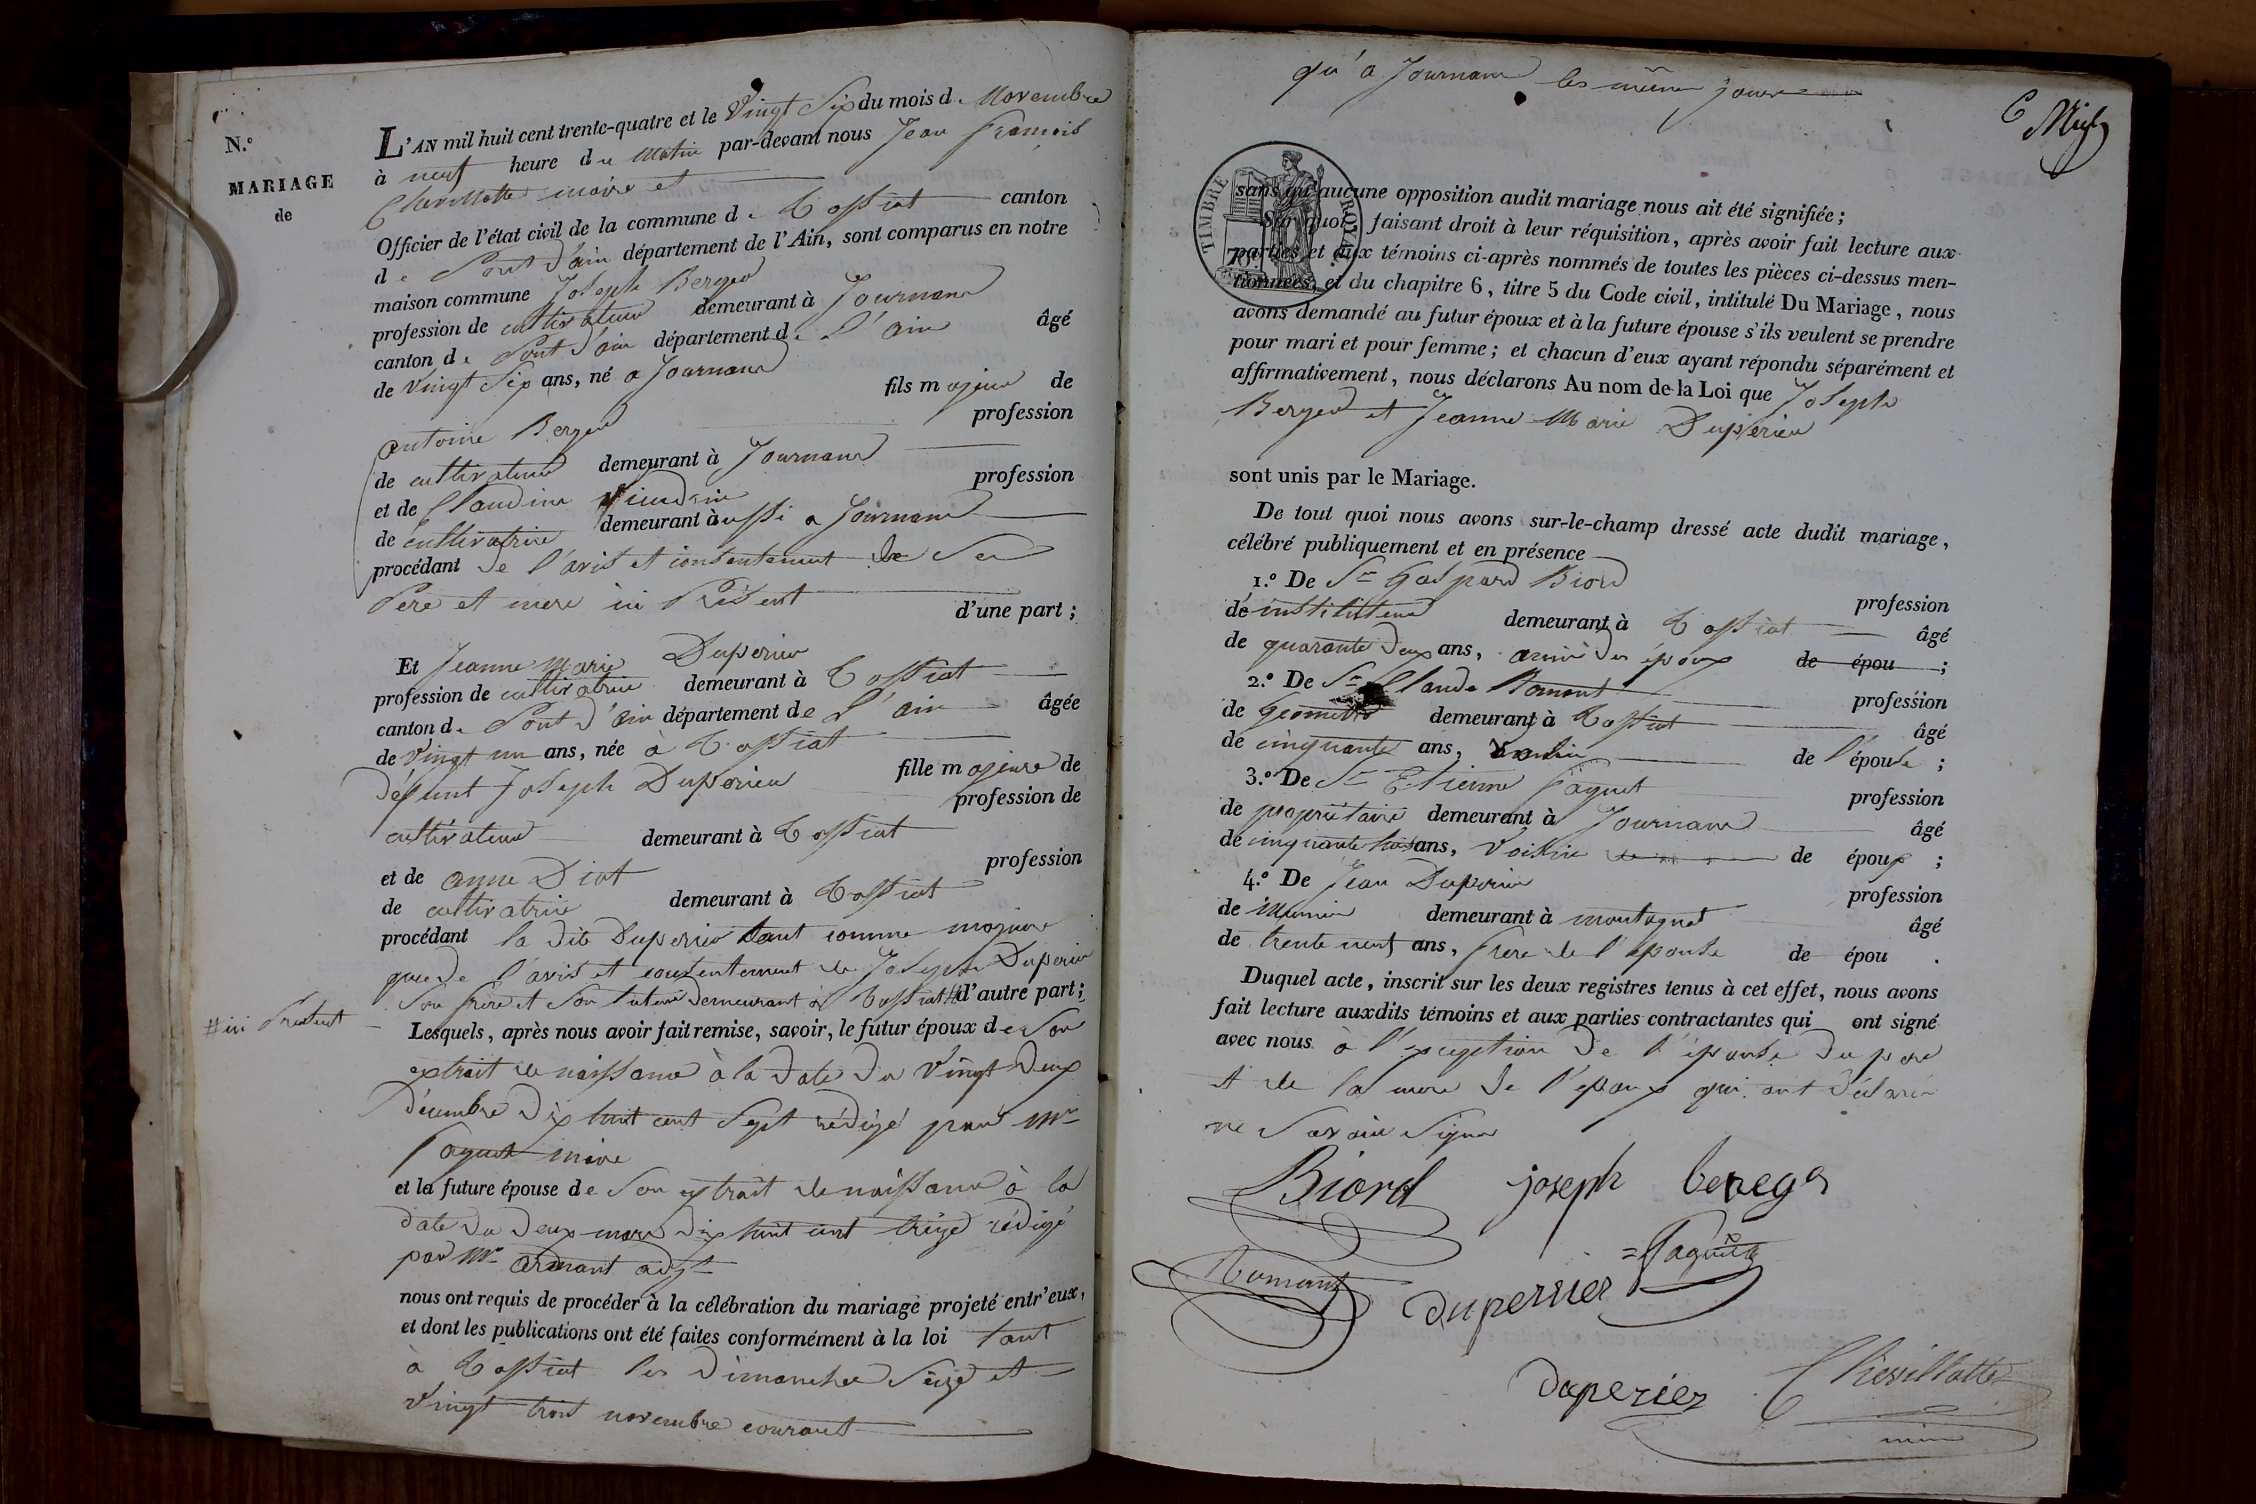 N.º
MARIAGE
de
L'AN mil huit cent trente-quatre et le Vingt Six du mois de Novembre
à neuf heure du matin par-devant nous Jean François
Chevillotte maire et
Officier de l'état civil de la commune de Tossiat canton
de Pont d'ain département de l'Ain, sont comparus en notre
maison commune Joseph Berger
profession de cultivateur demeurant à Journans
canton de Pont d'ain département de l'ain âgé
de Vingt Six ans, né a Journans fils majeur de
antoine Berger profession
de cultivateur demeurant à Journans
et de Claudine profession
de cultivatrice demeurant à aussi a Journans
procédant de l'avis et consentement de Ses
Pere et mere ici Présent d'une part ;
Et Jeanne Marie Duperier
profession de cultivatrice demeurant à Tossiat
canton de Pont d'ain département de l'ain âgée
de Vingt un ans, née à Tossiat fille majeure de
défunt Joseph Duperier profession de
cultivateur demeurant à Tossiat
et de anne Diot profession
de cultivatrice demeurant à Tossiat
procédant la dite Duperier tant comme majeure
que de l'avis et consentement de Joseph Duperier
Son frère et Son tuteur demeurant à Tossiat # d'autre part ;
# ici Présent
Lesquels, après nous avoir fait remise, savoir, le futur époux de Son
extrait de naissance à la date du Vingt deux
décembre dix huit cent Sept rédigé par Mr
Paquet maire
et la future épouse de Son extrait de naissance à la
date du deux mars dix huit cent treize rédigé
par Mr armant adjt
nous ont requis de procéder à la célébration du mariage projeté entr'eux,
et dont les publications ont été faites conformément à la loi tant
à Tossiat les Dimanches Seize et
Vingt trois novembre courant
qu'a Journans les même jours
TIMBRE ROYAL
sans qu'aucune opposition audit mariage nous ait été signifiée ;
Sur quoi, faisant droit à leur réquisition, après avoir fait lecture aux
parties et aux témoins ci-après nommés de toutes les pièces ci-dessus men-
tionnées, et du chapitre 6, titre 5 du Code civil, intitulé Du Mariage, nous
avons demandé au futur époux et à la future épouse s'ils veulent se prendre
pour mari et pour femme ; et chacun d'eux ayant répondu séparément et
affirmativement, nous déclarons Au nom de la Loi que Joseph
Berger et Jeanne Marie Duperier
sont unis par le Mariage.
De tout quoi nous avons sur-le-champ dressé acte dudit mariage,
célébré publiquement et en présence
1.º De Sr Gaspard Biord profession
de instituteur demeurant à Tossiat âgé
de quarante deux ans, ami des époux de épou ;
2.º De Sr Claude Romant profession
de Géometre demeurant à Tossiat âgé
de cinquante ans, de l'épouse ;
3.º De Sr Etienne Paquet profession
de propriétaire demeurant à Journans âgé
de cinquante trois ans, Voisin de époux ;
4.º De Jean Duperier profession
de demeurant à montagnat âgé
de trente neuf ans, frere de l'épouse de épou .
Duquel acte, inscrit sur les deux registres tenus à cet effet, nous avons
fait lecture auxdits témoins et aux parties contractantes qui ont signé
avec nous à l'exception de l'épouse du pere
et de la mere de l'epoux qui ont déclaré
ne Savoir Signer
Biord joseph bereger
Romant duperrier Paquet
duperier Chevillotte